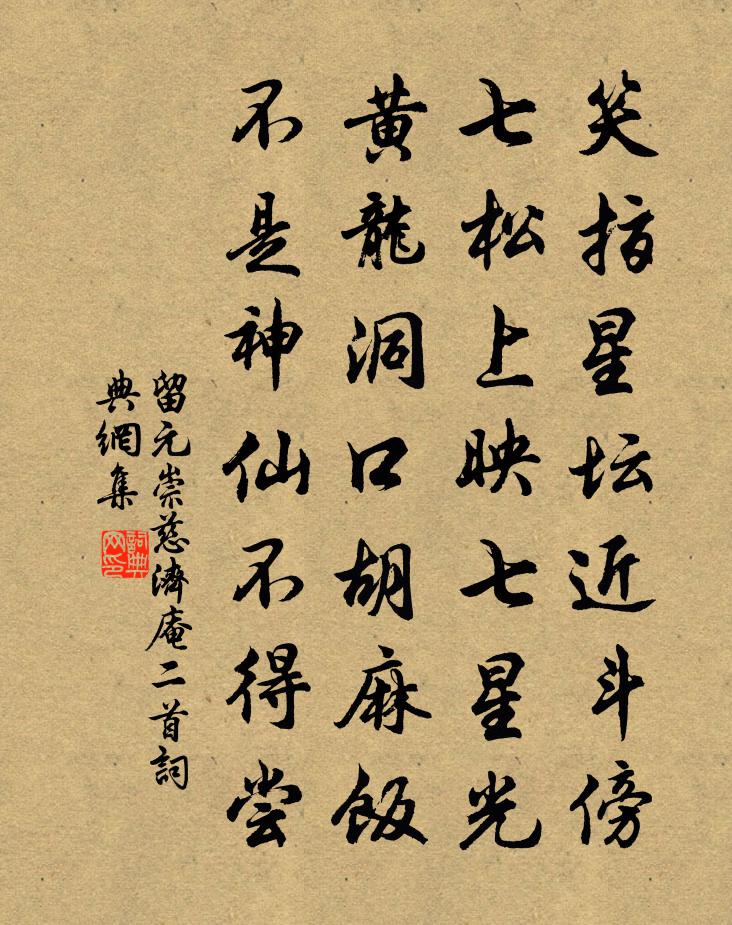 笑指星坛近斗傍
七松上映七星光
黄龍洞口胡麻飯
不是神仙不得尝
留元崇慈濟庵二首詞
典網集
詞典
网印